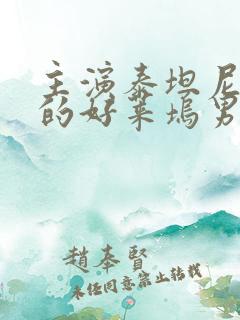 主演泰坦尼
的好莱坞男
趙奉賢
未经同意禁止转载